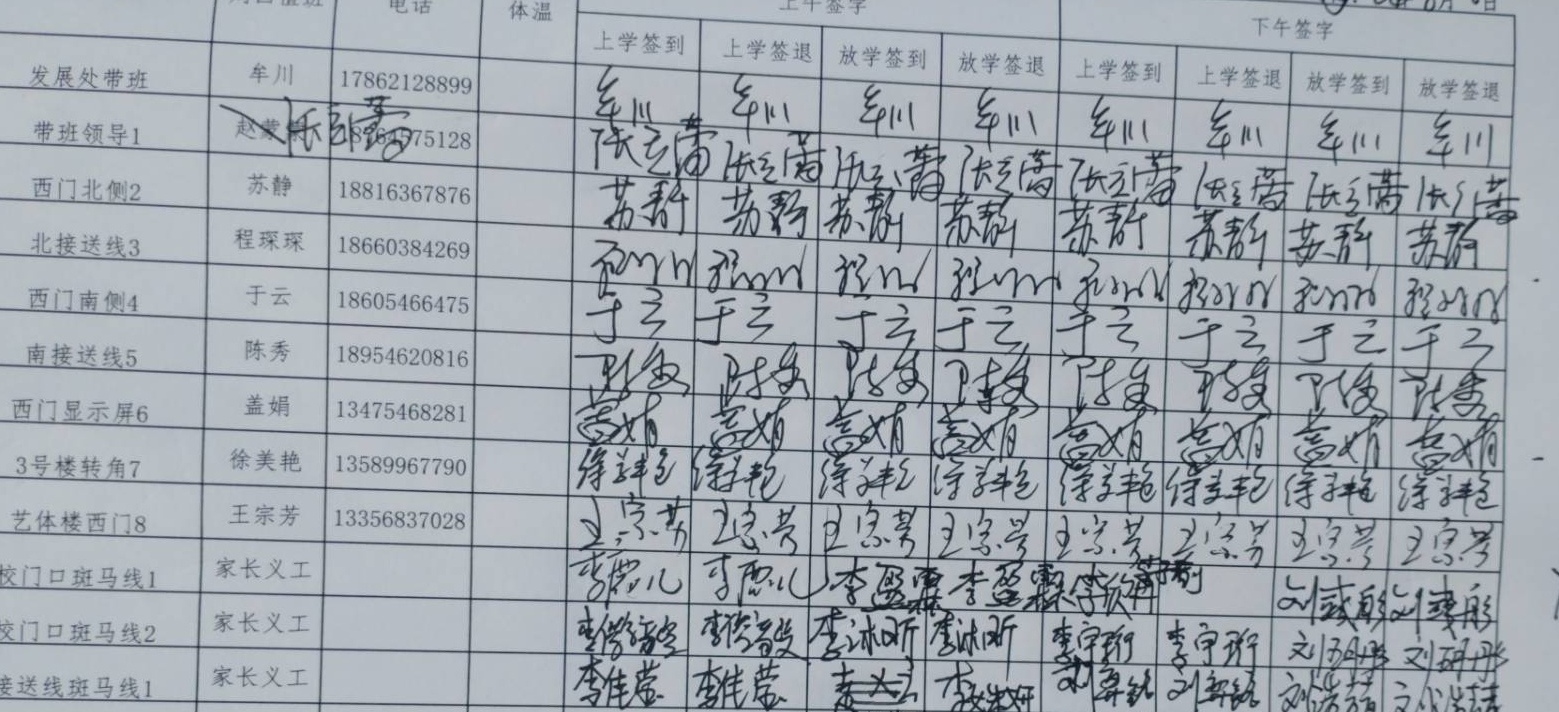 电话 体温 上午签字
下午签字
上学签到 上学签退 放学签到 放学签退 上学签到 上学签退 放学签到 放学签退
发展处带班 牟川 17862128899 牟川 牟川 牟川 牟川 牟川 牟川 牟川 牟川
带班领导1 张立蕾 75128 张立蕾 张立蕾 张立蕾 张立蕾 张立蕾 张立蕾 张立蕾 张立蕾
西门北侧2 苏静 18816367876 苏静 苏静 苏静 苏静 苏静 苏静 苏静 苏静
北接送线3 程琛琛 18660384269
西门南侧4 于云 18605466475 于云 于云 于云 于云 于云 于云 于云 于云
南接送线5 陈秀 18954620816 陈秀 陈秀 陈秀 陈秀 陈秀 陈秀 陈秀 陈秀
西门显示屏6 盖娟 13475468281 盖娟 盖娟 盖娟 盖娟 盖娟 盖娟 盖娟 盖娟
3号楼转角7 徐美艳 13589967790 徐美艳 徐美艳 徐美艳 徐美艳 徐美艳 徐美艳 徐美艳 徐美艳
艺体楼西门8 王宗芳 13356837028 王宗芳 王宗芳 王宗芳 王宗芳 王宗芳 王宗芳 王宗芳 王宗芳
校门口斑马线1 家长义工 李盈霖 李盈霖
校门口斑马线2 家长义工 李冰昕 李冰昕 李宇珩 李宇珩
接送线斑马线1 家长义工 李佳蓉 李佳蓉